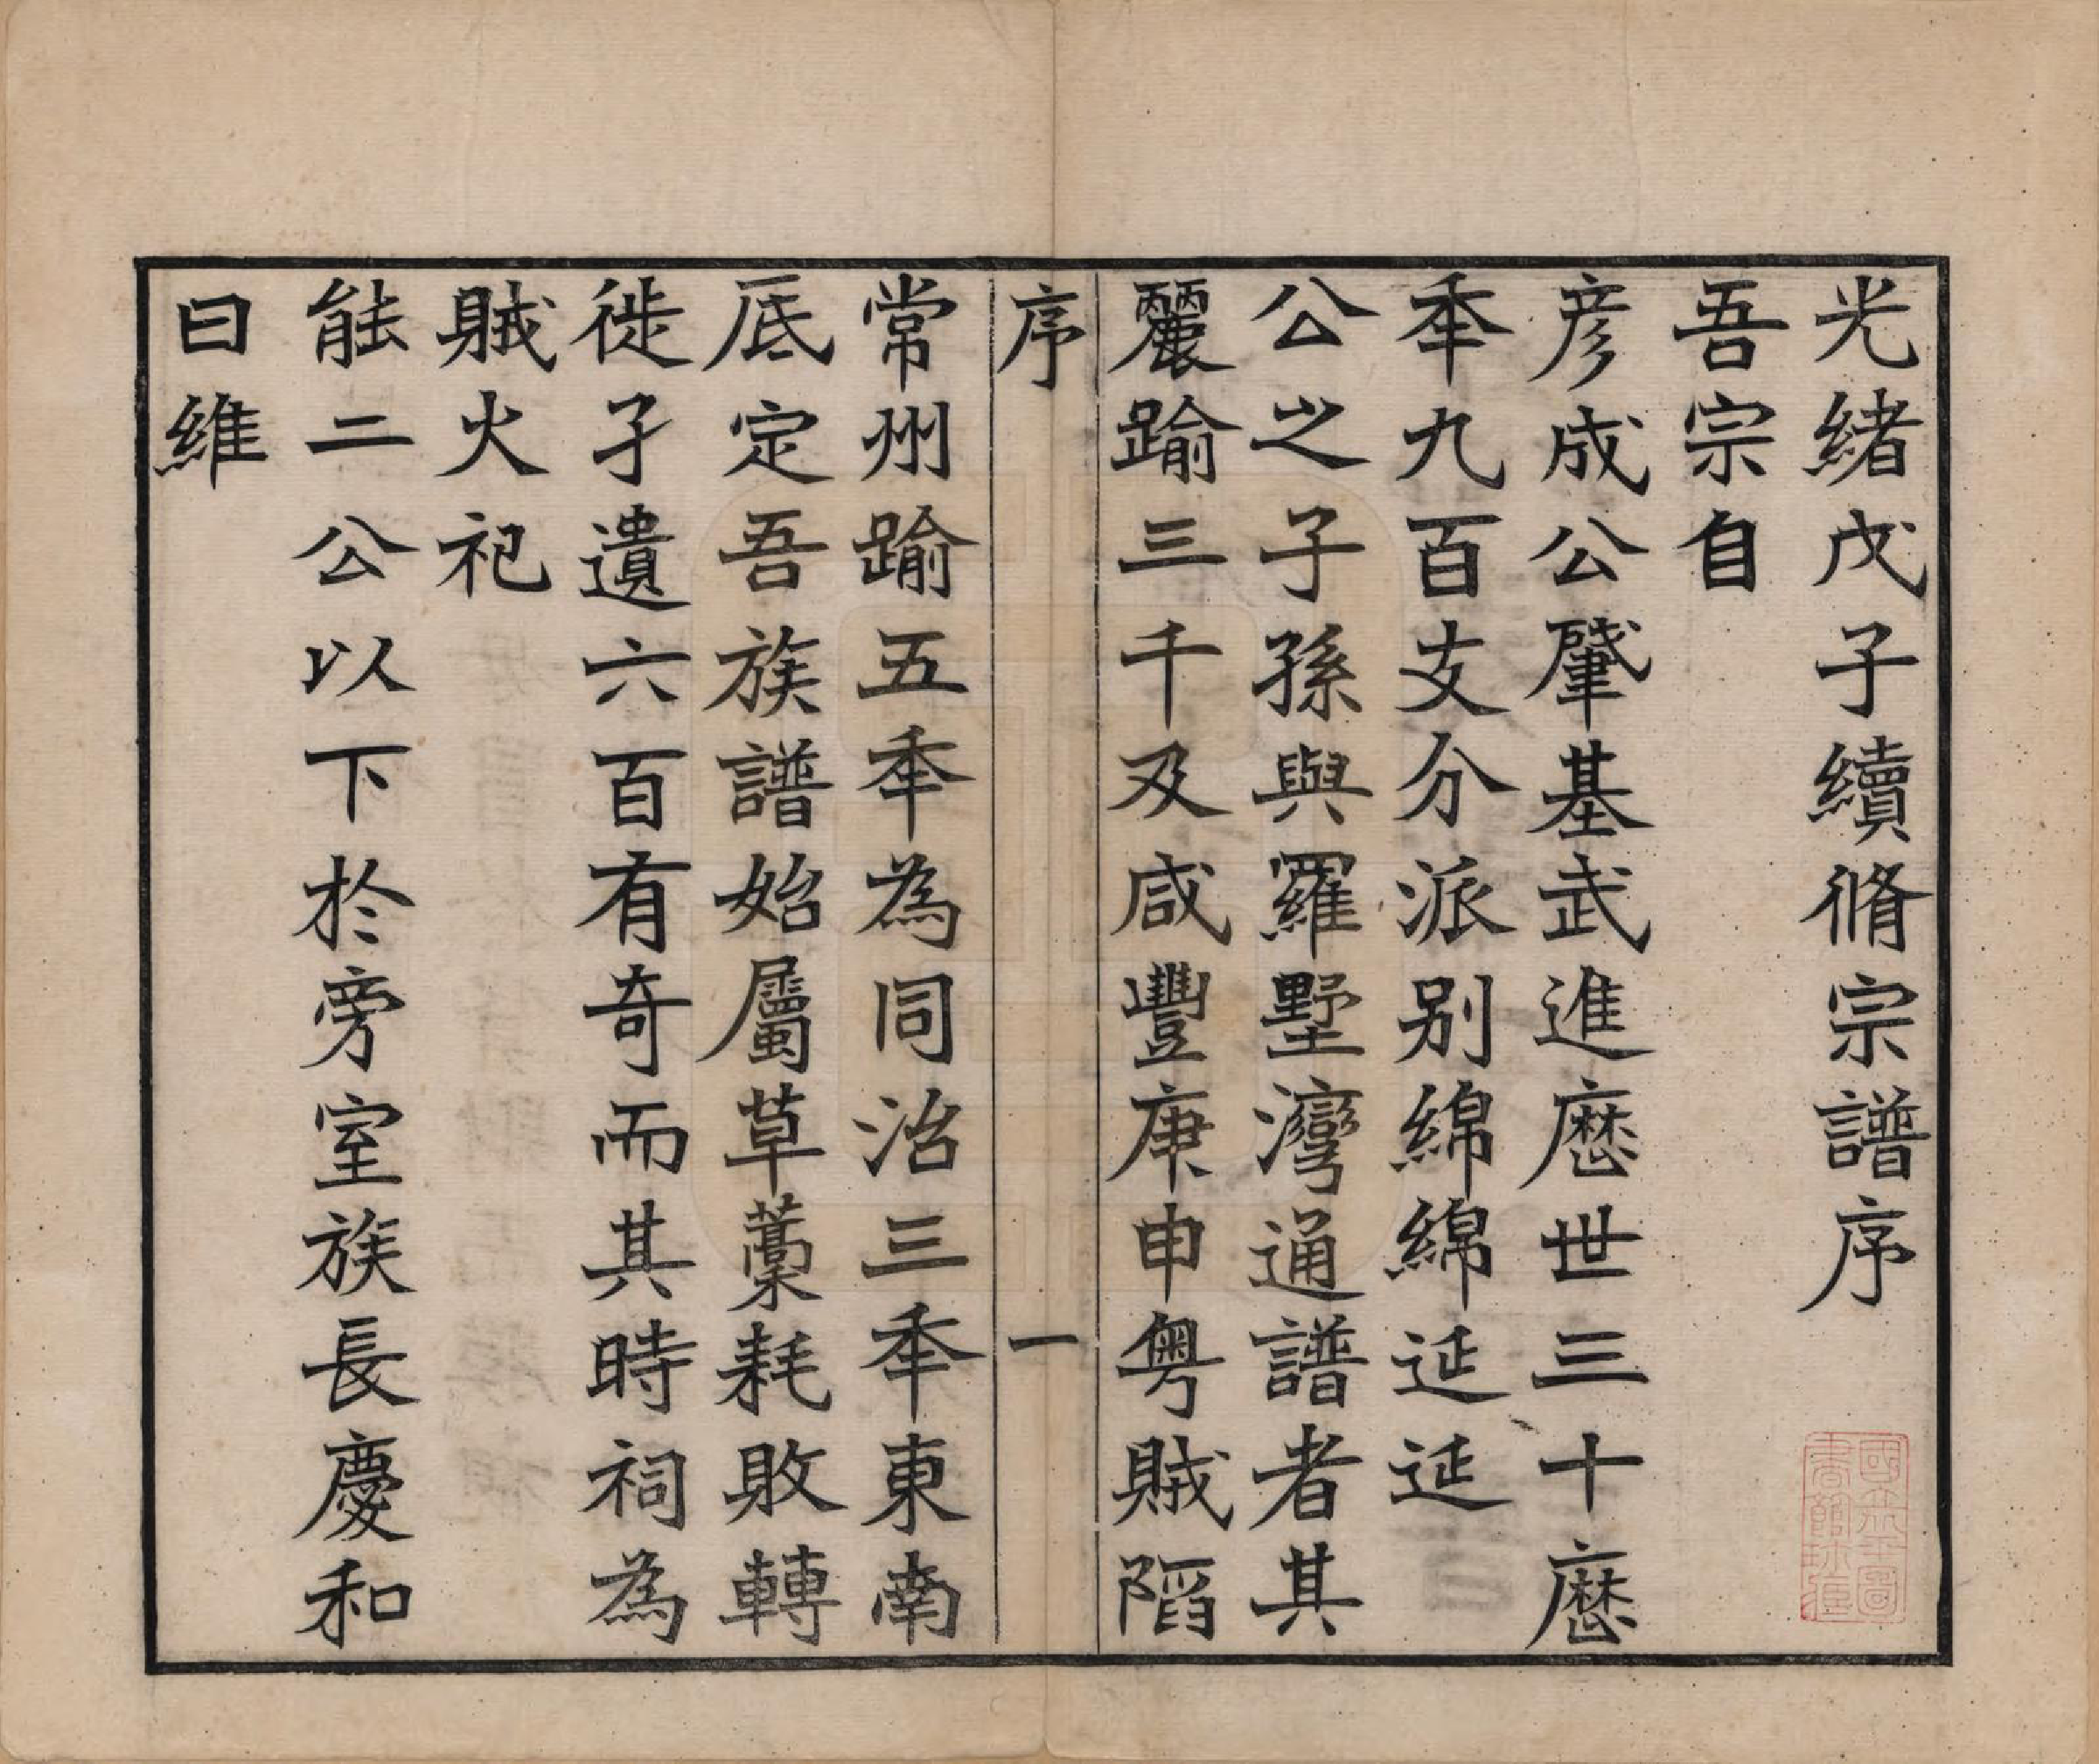 光緒戊子續脩宗譜序
吾宗自
彥成公肇基武進厯世三十厯
秊九百支分派别綿綿延延
公之子孫與羅墅灣通譜者其
麗踰三千及咸豐庚申粵賊䧟
序
一
常州踰五秊為同治三秊東南
厎定吾族譜始屬草藁耗敗轉
徙孑遺六百有奇而其時祠為
賊火祀
能二公以下於旁室族長慶和
曰維
國立北平圖書館珍藏